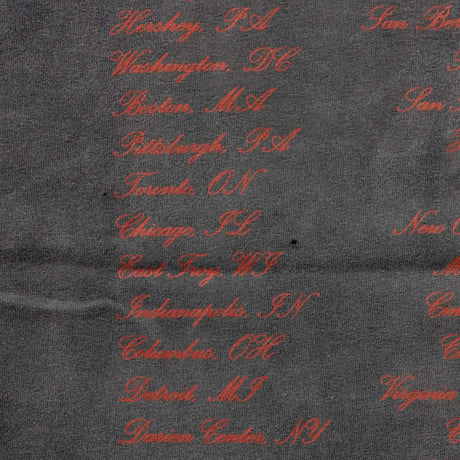 Hershey, PA
Washington, DC
Boston, MA
Pittsburgh, PA
Toronto, ON
Chicago, IL
East Troy, WI
Indianapolis, IN
Columbus, OH
Detroit, MI
Darien Center, NY
San Ber
San
New O
Cin
Virginia